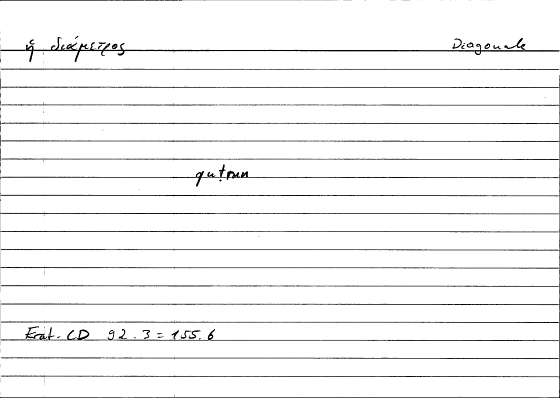 ἡ διάμετρος Diagonale
quṭrun
Erat. CD 92.3 = 155.6